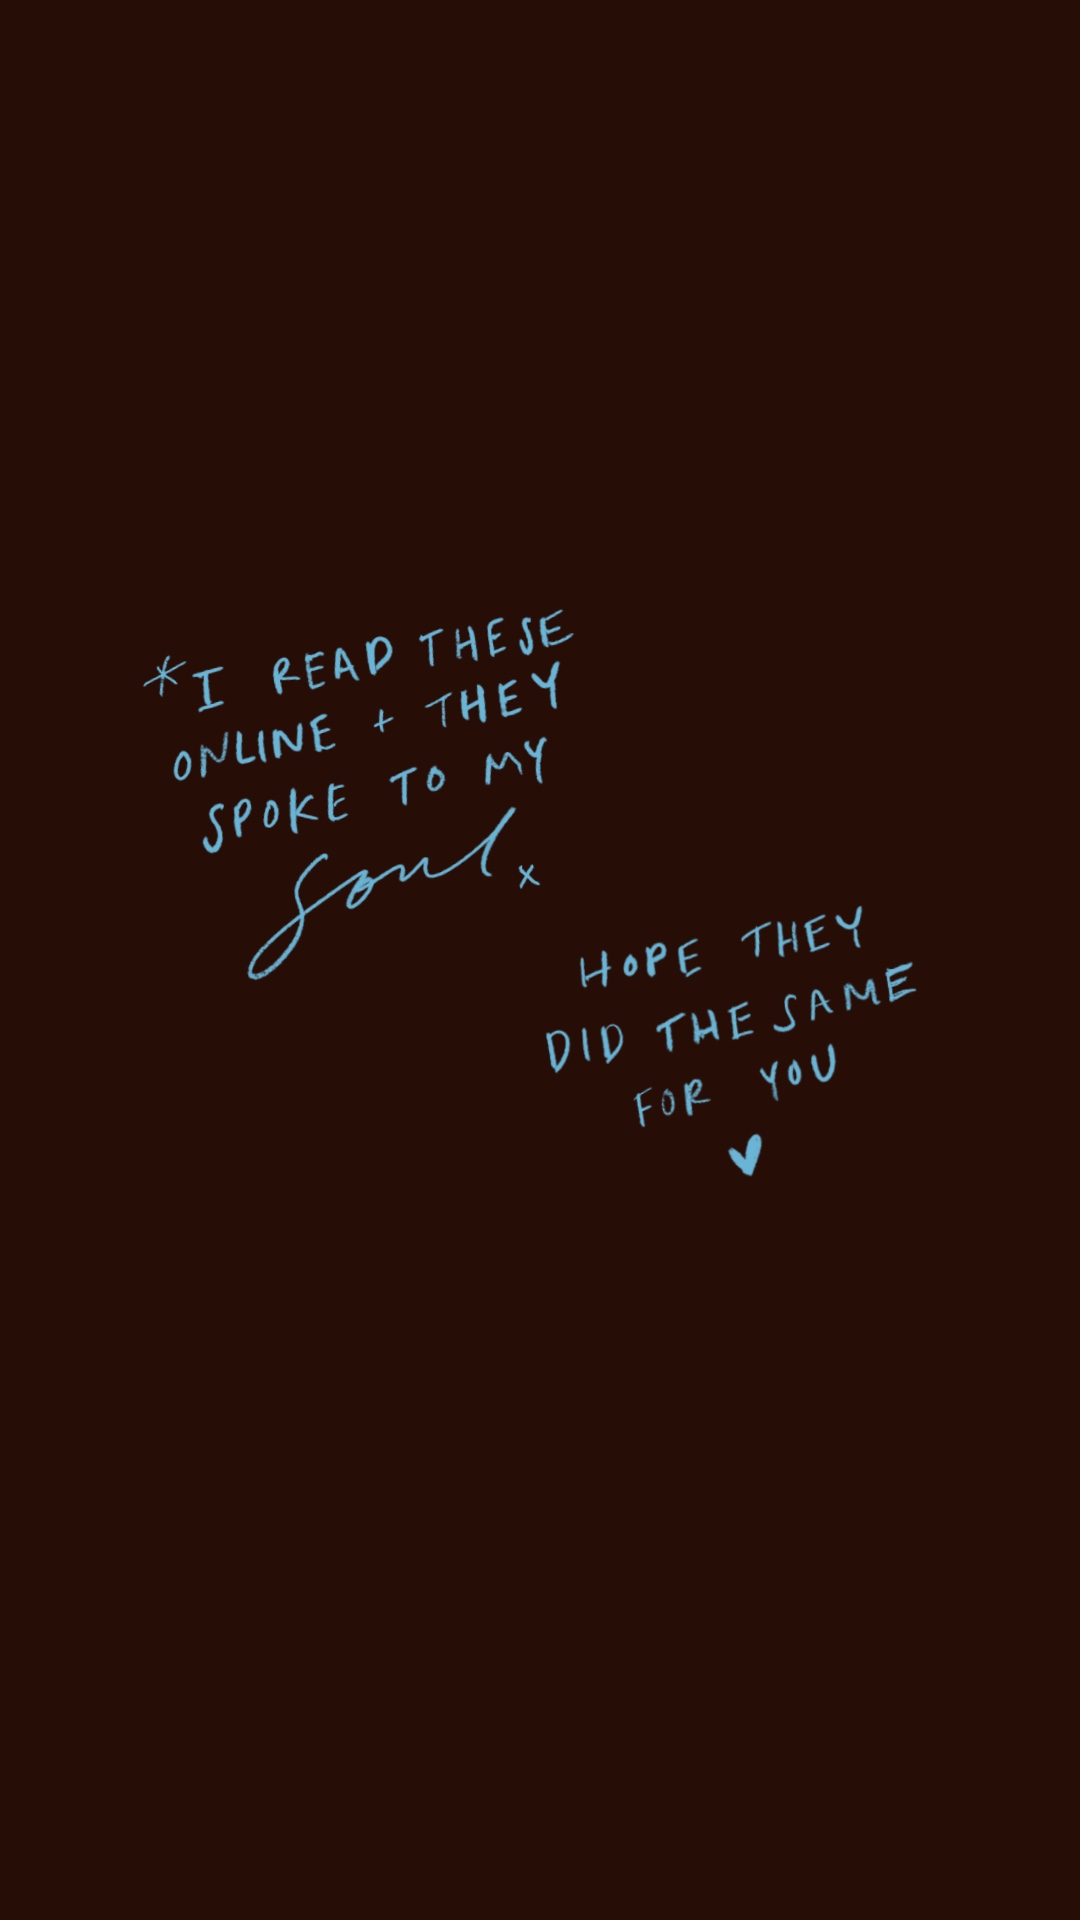 *I READ THESE
ONLINE + THEY
SPOKE TO MY
Soul x
HOPE THEY
DID THE SAME
FOR YOU